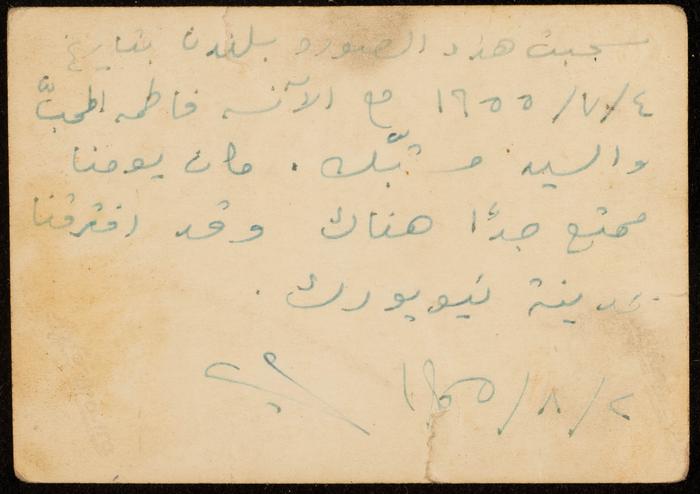 سحبت هذه الصوره بلندن بتاريخ
٤/٧/١٩٥٥ مع الآنسه فاطمه المحبّ
والسيد مـتبّك . كان يومنا
ممتع جدًا هناك وقد افترقنا
بمدينة نيويورك .
٢/٨/١٩٥٥